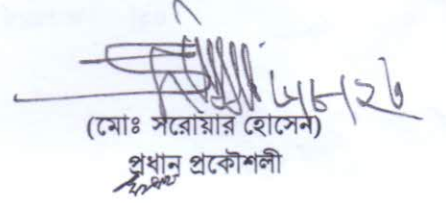 (মোঃ সরোয়ার হোসেন)
প্রধান প্রকৌশলী